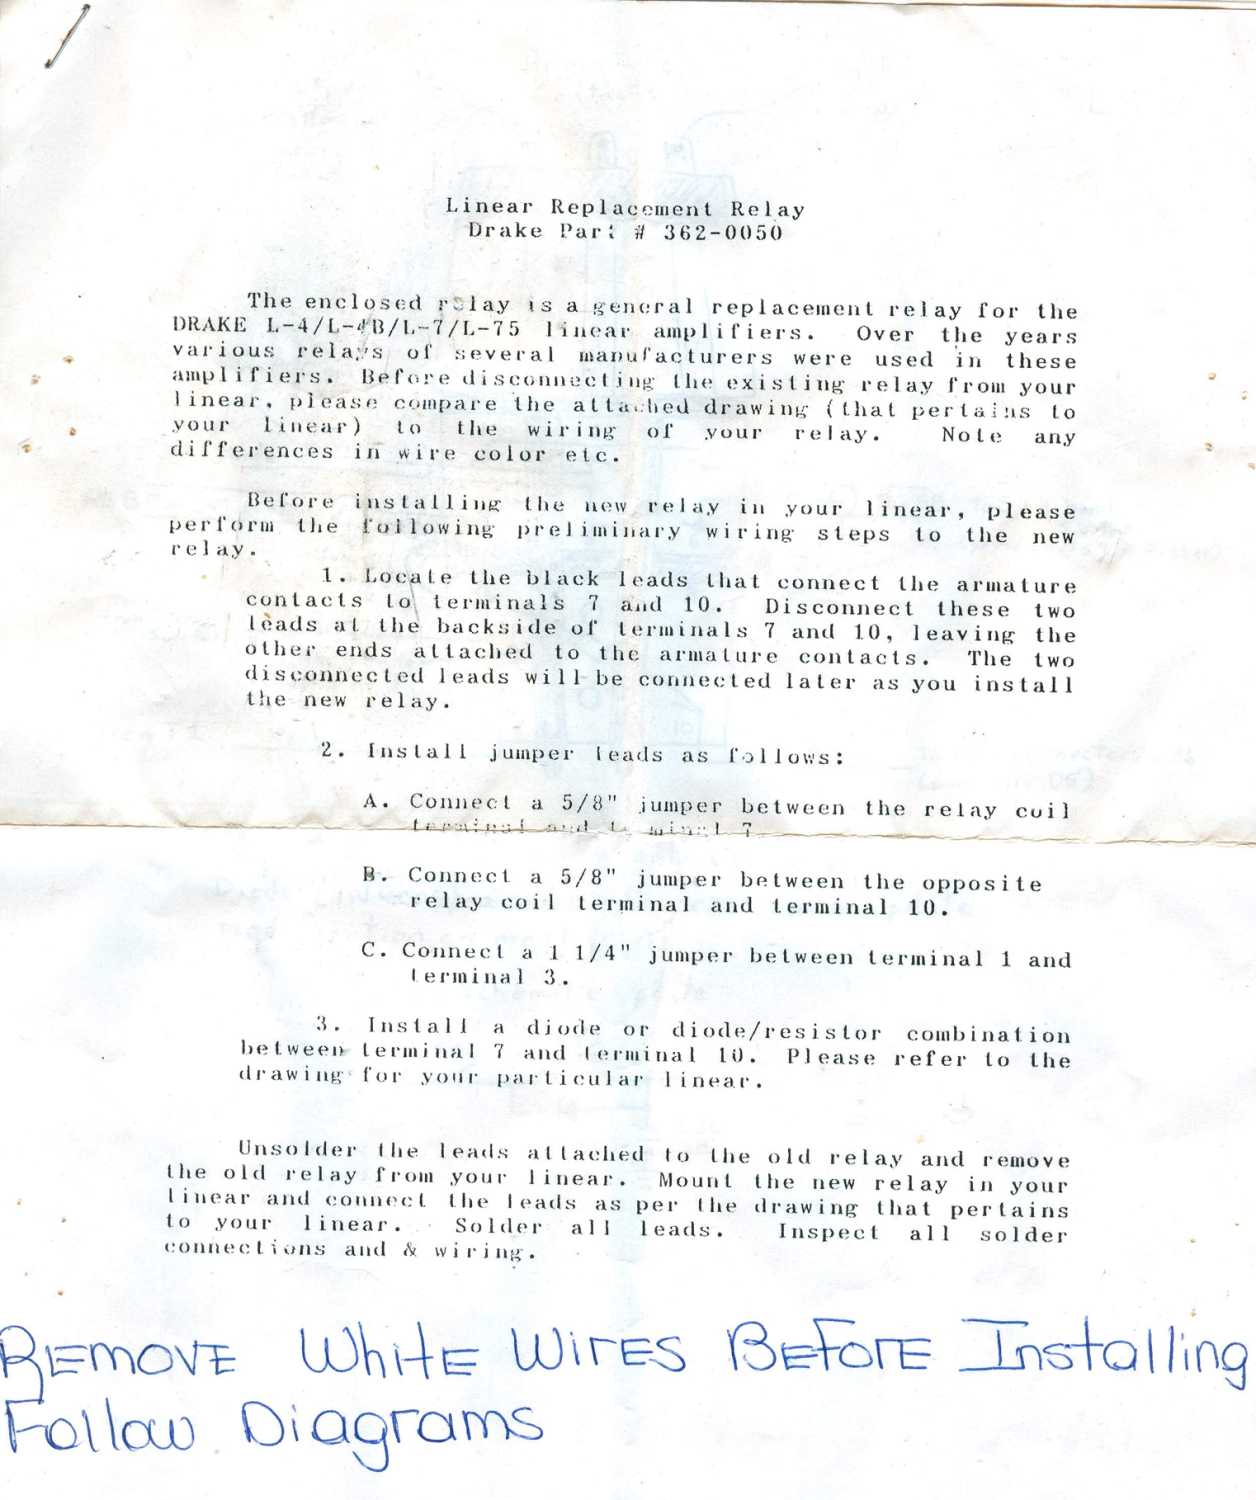 Linear Replacement Relay
Drake Part # 362-0050
The enclosed relay is a general replacement relay for the
DRAKE L-4/L-4B/L-7/L-75 linear amplifiers. Over the years
various relays of several manufacturers were used in these
amplifiers. Before disconnecting the existing relay from your
linear, please compare the attached drawing (that pertains to
your linear) to the wiring of your relay. Note any
differences in wire color etc.
Before installing the new relay in your linear, please
perform the following preliminary wiring steps to the new
relay.
1. Locate the black leads that connect the armature
contacts to terminals 7 and 10. Disconnect these two
leads at the backside of terminals 7 and 10, leaving the
other ends attached to the armature contacts. The two
disconnected leads will be connected later as you install
the new relay.
2. Install jumper leads as follows:
A. Connect a 5/8" jumper between the relay coil
terminal and terminal 7.
B. Connect a 5/8" jumper between the opposite
relay coil terminal and terminal 10.
C. Connect a 1 1/4" jumper between terminal 1 and
terminal 3.
3. Install a diode or diode/resistor combination
between terminal 7 and terminal 10. Please refer to the
drawing for your particular linear.
Unsolder the leads attached to the old relay and remove
the old relay from your linear. Mount the new relay in your
linear and connect the leads as per the drawing that pertains
to your linear. Solder all leads. Inspect all solder
connections and & wiring.
REMOVE White WirES BEforE Installing
Follow Diagrams